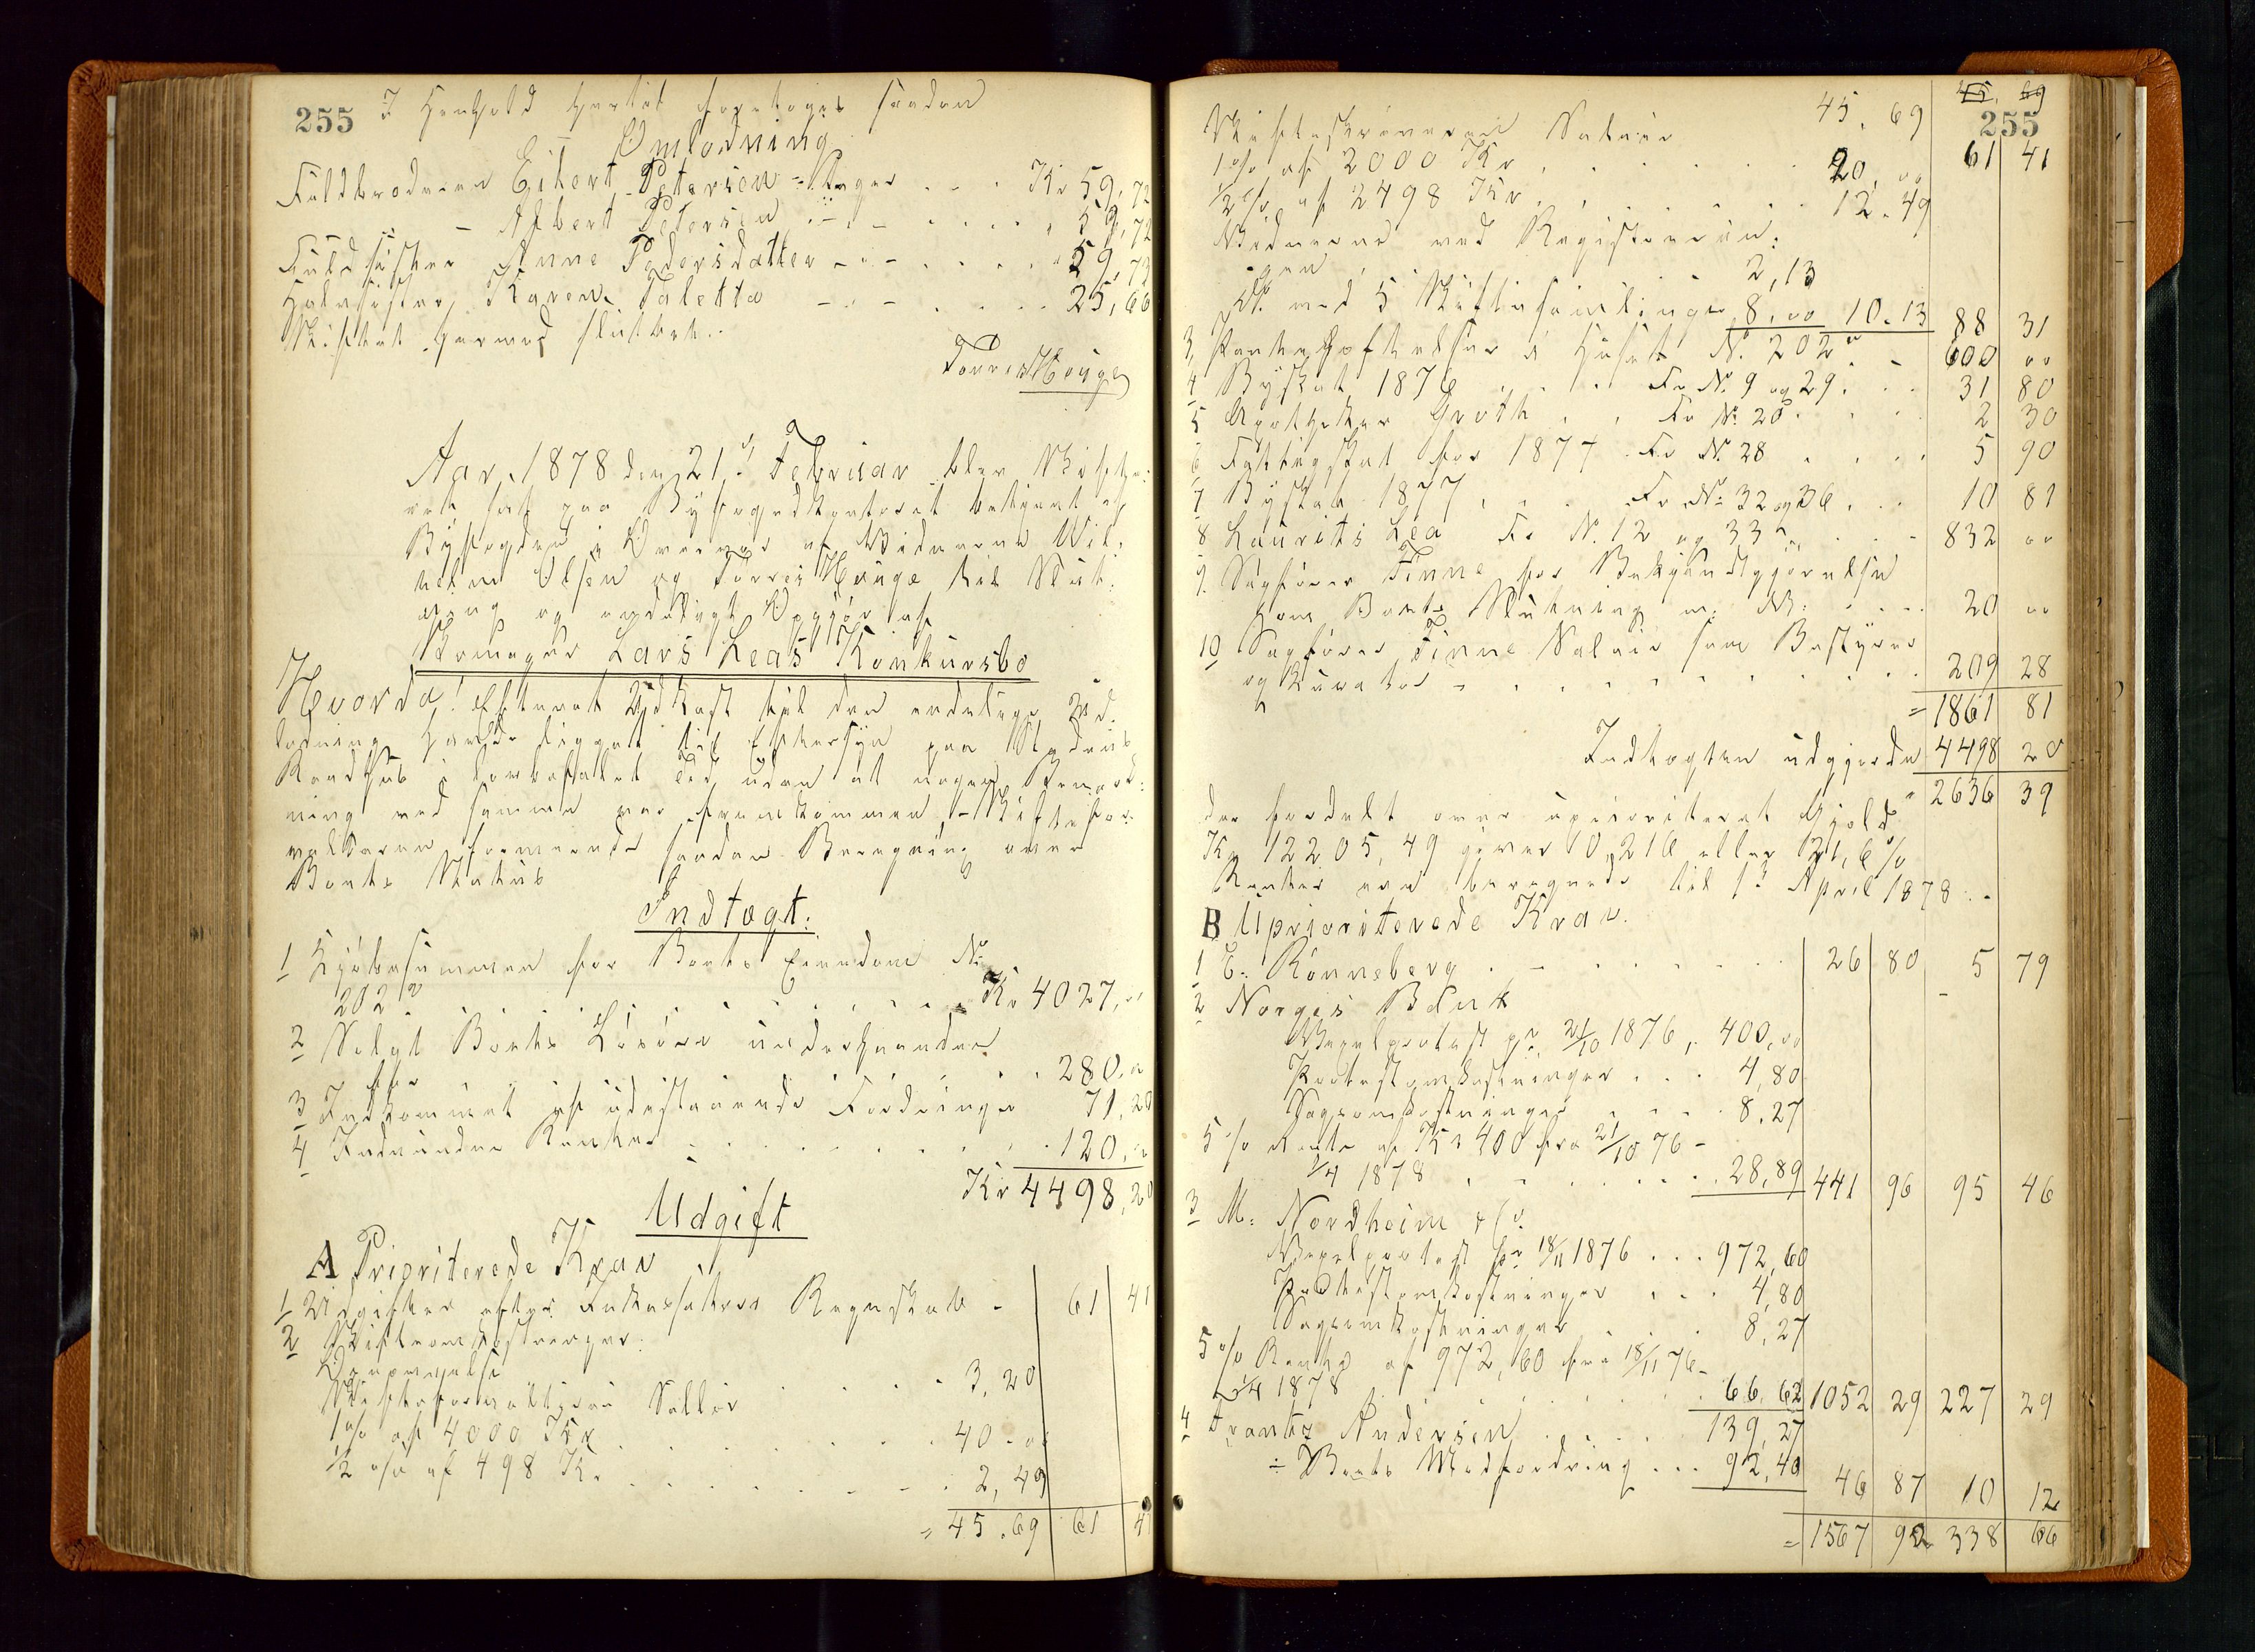 255
I Henhold hertil foretoges saadan
Omlodning
Fuldbroderen Eilert Petersen tager . . . Kr 59,72
— Albert Petersen — " — . . . . 59,72
Fuldsøster Anne Pedersdatter — " — . . . 59,73
Halvsøster Karen Taletta — " — . . . 25,66
Skiftet hermed sluttet.
Tørres Houge
Aar 1878 den 21de Februar blev Skifte-
ret sat paa Byfogedkontoret betjent af
Byfogden i Overvær af Vidnerne Vil-
helm Olsen og Tørres Houge til Slut-
ning og endeligt Opgjør af
Lars Leas Konkursbo
Hvorda! Efterat Udkast til den endelige Ud-
lodning havde ligget til Eftersyn paa Stedets
Raadhus i lovbefalet Tid uden at nogen Bemærk-
ning ved samme var fremkommen, - Skiftefor-
valteren formerede saadan Beregning over
Boets Status
Indtægt:
1 Kjøbesummen for Boets Eiendom No
202 a . . . . . . . . . . Kr 4027,00
2 Solgt Boets Løsøre underhaanden
for . . . . . 280.00
3 Indkommet af udestaaende Fordringer 71,20
4 Indvundne Renter . . . . . . . 120,00
Kr 4498,20
Udgift
A Prioriterede Krav
1 Udgifter efter Inkassators Regnskab - 61 41
2 Skifteomkostninger:
Skifteforvalterens Sallær . . . . 3,20
1 % af 4000 Kr . . . . . . . 40.00
1/2 % af 498 Kr . . . . . . . 2,49
= 45.69 61 41
45. 69
255
Skifteskriveren Salær 45.69 61 41
1 % af 2000 Kr . . . . . . . 20,00
1/2 % af 2498 Kr . . . . . . . 12.49
Vidnerne ved Registrerin-
gen 2,13
Do. ved 5 Skiftesamlinger 8,00 10.13 88 31
3, Panteheftelser i Huset No. 202 a . - 600 00
4 Byskat 1876 . . . . Fr No. 9 og 29. . . 31 80
5 Apotheker Groth . . Fr No. 20 . . . 2 30
6 Fattigskat for 1877 . Fr No. 28 . . . . 5 90
7 Byskat 1877 . . . Fr No. 32 og 36 . . . 10 81
8 Laurits Lea Fr No. 12 og 33 . . . 832 00
9. Sagfører Finne for Bekjendtgjørelse
om Boets Slutning m. M. . . . . 20 00
10 Sagfører Finne Salair som Bestyrer
og Kurator - . . . . . . . . 209 28
= 1861 81
Indtægten udgjorde 4498 20
2636 39
der fordelt over uprioriteret Gjæld
Kr 12205,49 giver 0,216 eller 21,6 %
Renter ere beregnede til 1ste April 1878 . -
B Uprioriterede Krav.
1 E. Rønneberg . - . . . . . . 26 80 5 79
2 Norges Bank
Vexelprotest pr 21/10 1876, . 400,00
Protestomkostninger . . . 4,80
Sagsomkostninger . . . . 8.27
5 % Rente af Kr 400 fra 21/10 76 -
1/4 1878 . . . . . . . . 28,89 441 96 95 46
3 M. Nordheim & Co.
Vexelprotest pr 18/11 1876 . . . 972,60
Protestomkostninger . . . 4,80
Sagsomkostninger . . 8,27
5 % Rente af 972,60 fra 18/11 76 -
1/4 1878 . . . . . . . 66,62 1052 29 227 29
4 Frantz Andersen . . . . . 139,27
÷ Boets Modfordring . . . 92,40 46 87 10 12
= 1567 92 338 66